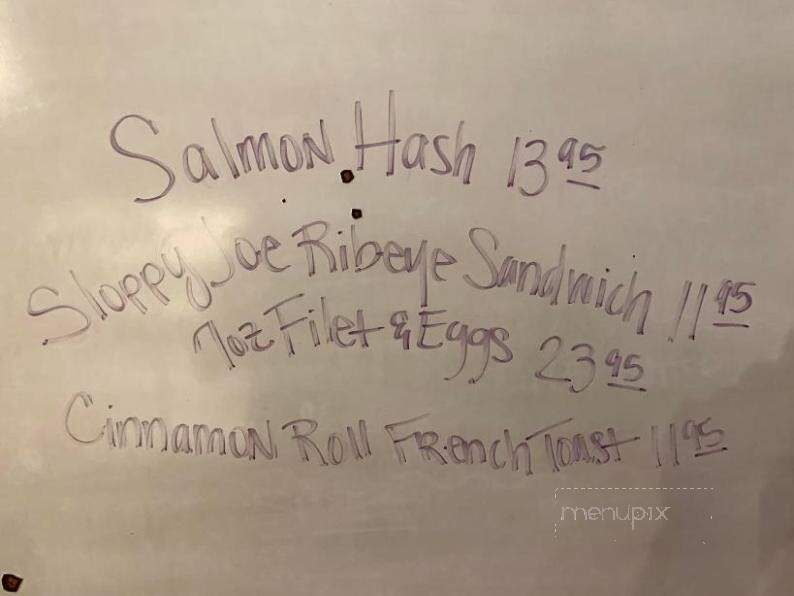 Salmon Hash 13 95
Sloppy Joe Ribeye Sandwich 11 95
7oz Filet & Eggs 23 95
Cinnamon Roll French Toast 11 95
menupix